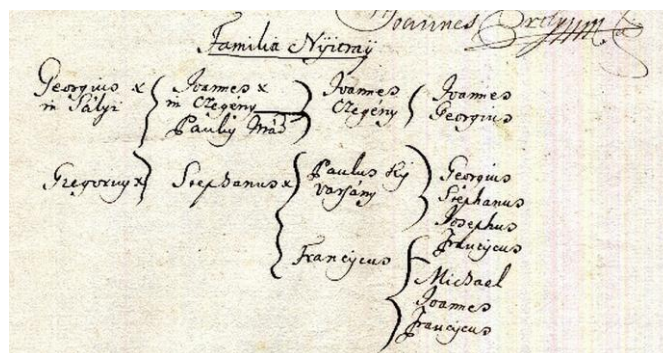 Joannes
Familia Nÿitraÿ
Georgius x
in Pályi
Joannes x
in Czegény
Pauliÿ Mád
Joannes
Czegény
Joannes
Georgius
Gregoriuÿ x
Stephanus x
Paulus Kÿ
varsány
Georgius
Stephanus
Josephus
Francÿcus
Francÿcus
Michael
Joannes
Francÿcus